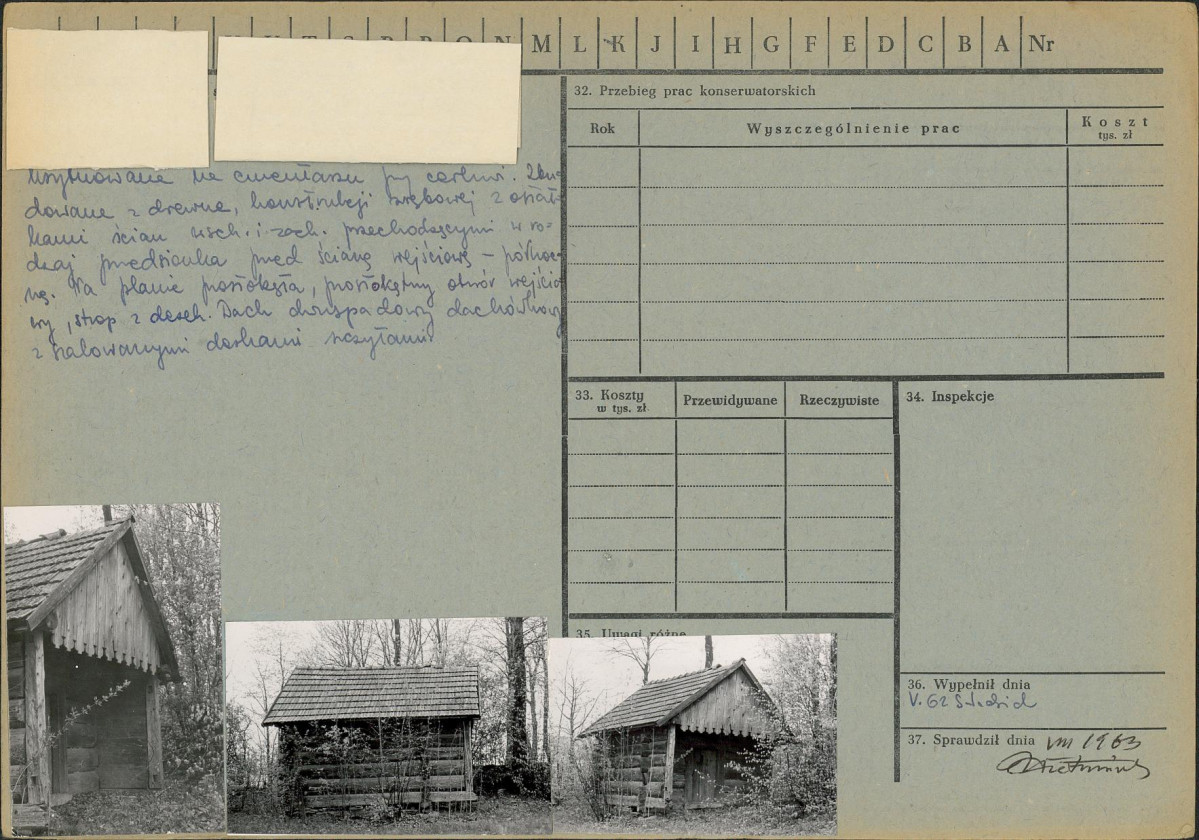 M L K J I H G F E D C B A Nr
usytuowana na cmentarzu przy cerkwi. Zbu-
dowana z drewna, konstrukcji zrębowej z ostat-
kami ścian wsch. i zach. przechodzącymi w ro-
dzaj przedsionka przed ścianą wejściową – północ-
ną. Na planie prostokąta, prostokątny otwór wejścio
wy, strop z desek. Dach dwuspadowy dachówkowy
z szalowanymi deskami szczytami.
32. Przebieg prac konserwatorskich
Rok Wyszczególnienie prac Koszt
tys. zł
33. Koszty
w tys. zł.
Przewidywane Rzeczywiste
34. Inspekcje
35. Uwagi różne
36. Wypełnił dnia
V. 62
37. Sprawdził dnia VIII 1963